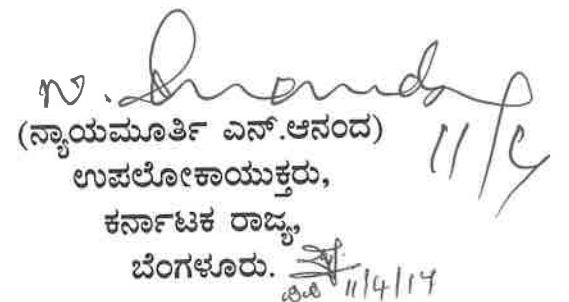 N. Ananda
11/4
(ನ್ಯಾಯಮೂರ್ತಿ ಎನ್.ಆನಂದ)
ಉಪಲೋಕಾಯುಕ್ತರು,
ಕರ್ನಾಟಕ ರಾಜ್ಯ,
ಬೆಂಗಳೂರು.
11/4/17